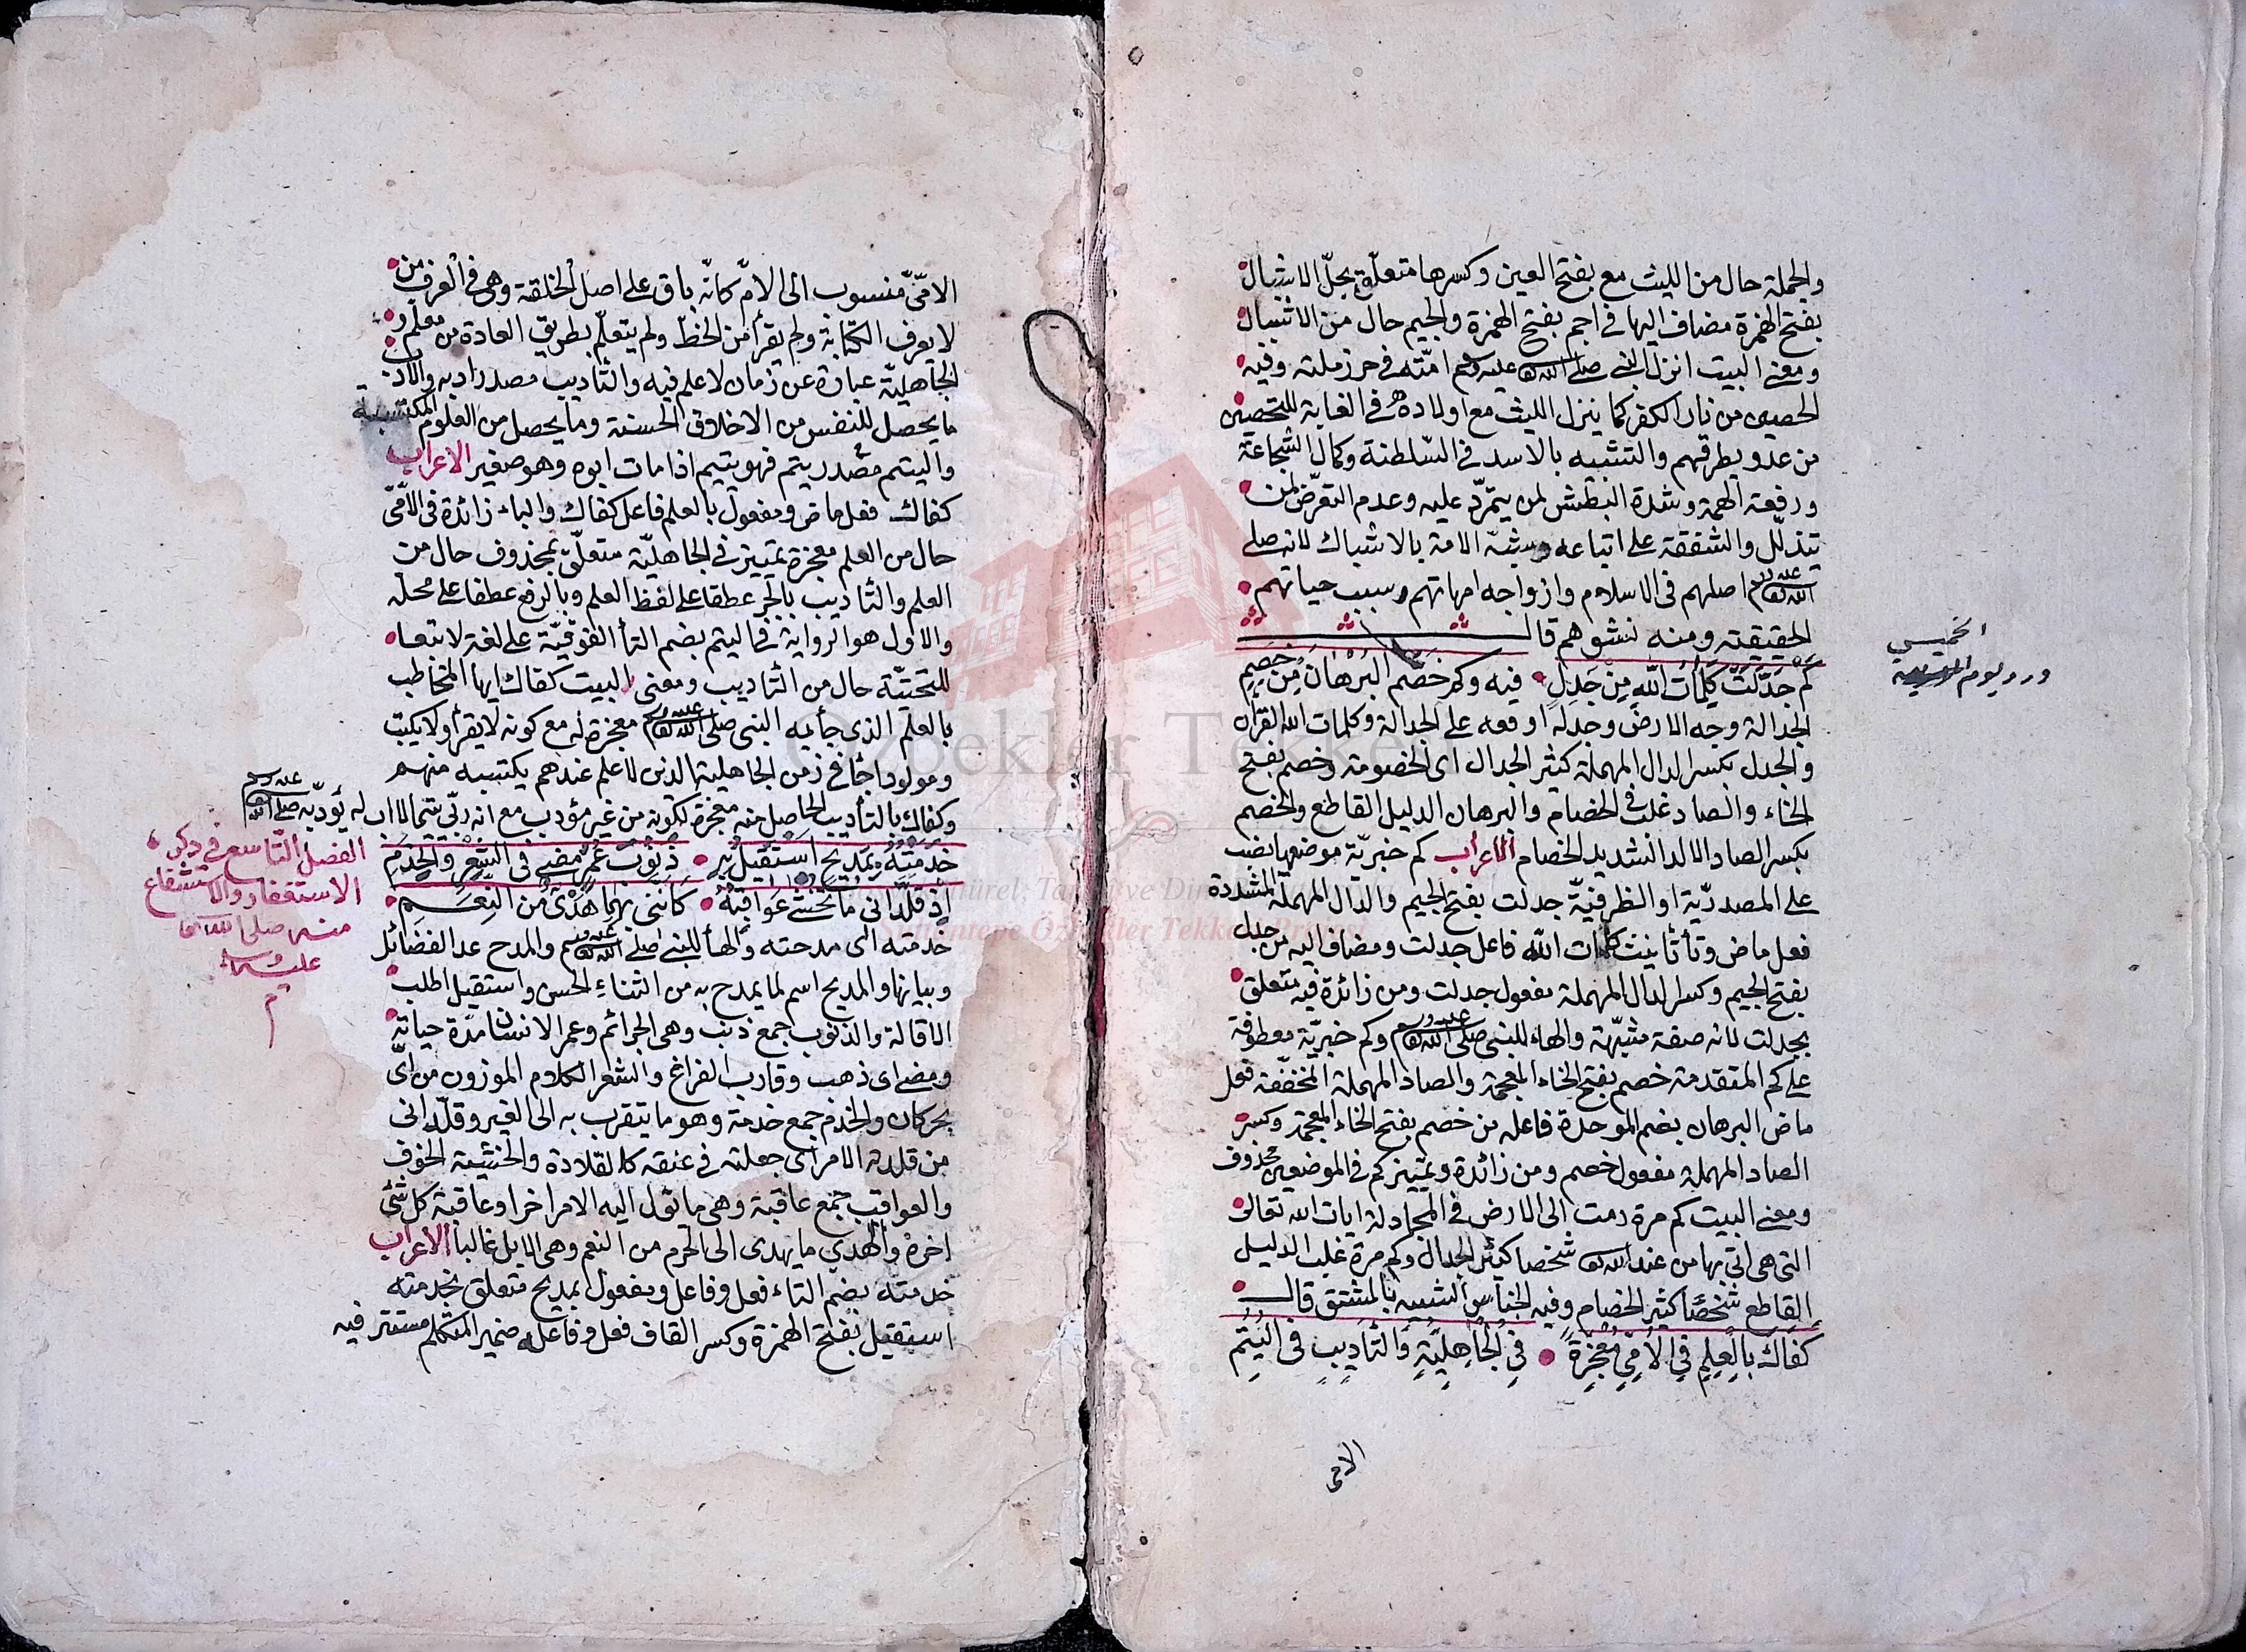 والجملة حال من الليث مع بفتح العين وكسرها متعلق بحل الاشبال
بفتح الهمزة مضاف اليها في اجم بفتح الهمزة والجيم حال من الاشبال
ومعنى البيت انزل النبي صلى الله عليه وسلم امته في حرز ملته وفيه
الحصين من نار الكفر كما ينزل الليث مع اولاده في الغابة للتحصين
من عدو يطرقهم والتشبيه بالاسد في السلطنة وكمال الشجاعة
ورفعة الهمة وشدة البطش لمن يتمرد عليه وعدم التعرض لمن
تذلل والشفقة على اتباعه وشبه الامة بالاشبال لانه صلى
الله عليه وسلم اصلهم في الاسلام وازواجه امهاتهم وسبب حياتهم
الحقيقية ومنه نشوهم قال
كَمْ جَدَّلَتْ كَلِمَاتُ اللهِ مِنْ جَدِلٍ فيه وكم خَصَمَ البُرْهَانُ مِنْ خَصِمِ
الجدالة وجه الارض وجدله اوقعه على الجدالة وكلمات الله القرآن
والجدل بكسر الدال المهملة كثير الجدال اى الخصومة وخصم بفتح
الخاء والصاد غلب في الخصام والبرهان الدليل القاطع والخصم
بكسر الصاد الالد الشديد الخصام الاعراب كم خبرية موضعها نصب
على المصدرية او الظرفية جدلت بفتح الجيم والدال المهملة المشددة
فعل ماض وتا تانيث كلمات الله فاعل جدلت ومضاف اليه من جدل
بفتح الجيم وكسر الدال المهملة مفعول جدلت ومن زائدة فيه متعلق
بجدلت لانه صفة مشبهة والهاء للنبي صلى الله عليه وسلم وكم خبرية معطوفة
على كم المتقدمة خصم بفتح الخاء المعجمة والصاد المهملة المخففة فعل
ماض البرهان بضم الموحدة فاعله من خصم بفتح الخاء المعجمة وكسر
الصاد المهملة مفعول خصم ومن زائدة وتمييز كم في الموضعين محذوف
ومعنى البيت كم مرة رمت الى الارض في المجادلة ايات الله تعالى
التي هي اتى بها من عند الله شخصا كثير الجدال وكم مرة غلب الدليل
القاطع شخصا كثير الخصام وفيه الجناس الشبيه بالمشتق قال
كَفَاكَ بِالعِلْمِ فِي الأُمِّيِّ مُعْجِزَةً فِي الجَاهِلِيَّةِ وَالتَّأدِيبِ فِي اليُتُمِ
الامى
الخميس
ورد يوم
الامّىّ منسوب الى الامّ كانّه باق على اصل الخلقة وهى في العرف من
لا يعرف الكتابة ولم يقرأ من الخطّ ولم يتعلّم بطريق العادة من معلم و
الجاهليّة عبارة عن زمان لا علم فيه والتأديب مصدر ادبه والادب
ما يحصل للنفس من الاخلاق الحسنة وما يحصل من العلوم المكتسبة
واليتم مصدر يتم فهو يتيم اذا مات ابوه وهو صغير الاعراب
كفاك فعل ماض ومفعول بالعلم فاعل كفاك والباء زائدة في الامّىّ
حال من العلم معجزة تمييز في الجاهليّة متعلّق بمحذوف حال من
العلم والتأديب بالجر عطفا على لفظ العلم وبالرفع عطفا على محلّه
والاول هو الرواية في اليتم بضم التا الفوقيّة على لغة لاتبعا
للتحتيّة حال من التأديب ومعنى البيت كفاك ايها المخاطب
بالعلم الذى جأ به النبي صلى الله عليه وسلم معجزة له مع كونه لا يقرأ ولا يكتب
ومولودا جا في زمن الجاهلية الذين لا علم عندهم يكتسبه منهم
وكفاك بالتأديب الحاصل منه معجزة لكونه من غير مؤدب مع انه ربّى يتيما لا اب له يؤدّبه صلى الله عليه وسلم
خَدَمْتُهُ بِمَدِيحٍ اَسْتَقِيلُ بِهِ ذُنُوبَ عُمْرٍ مَضَى فِي الشِّعْرِ وَالخِدَمِ
اِذْ قَلَّدَانِى مَا تُخْشَى عَوَاقِبُهُ كَاَنَّنِى بِهِمَا هَدْىٌ مِنَ النِّعَمِ
خدمته اى مدحته والهأ للنبي صلى الله عليه وسلم والمدح عد الفضائل
وبيانها والمديح اسم لما يمدح به من الثناء الحسن واستقيل اطلب
الاقالة والذنوب جمع ذنب وهى الجرائم وعمر الانسان مدّة حياته
ومضى اى ذهب وقارب الفراغ والشعر الكلام الموزون من اىّ
بحر كان والخدم جمع خدمة وهو ما يتقرب به الى الغير وقلّدانى
من قلدته الامر اى جعلته في عنقه كالقلادة والخشية الخوف
والعواقب جمع عاقبة وهى ما تول اليه الامر اخرا وعاقبة كل شئ
اخره والهدي ما يهدى الى الحرم من النعم وهى الابل غالبا الاعراب
خدمته بضم التاء فعل وفاعل ومفعول بمديح متعلق بخدمته
استقيل بفتح الهمزة وكسر القاف فعل وفاعله ضمير المتكلم مستتر فيه
الفصل التاسع في ذكر
الاستغفار والاستشفاع
منه صلى الله
عليه وسلم
م
Özbekler Tekke